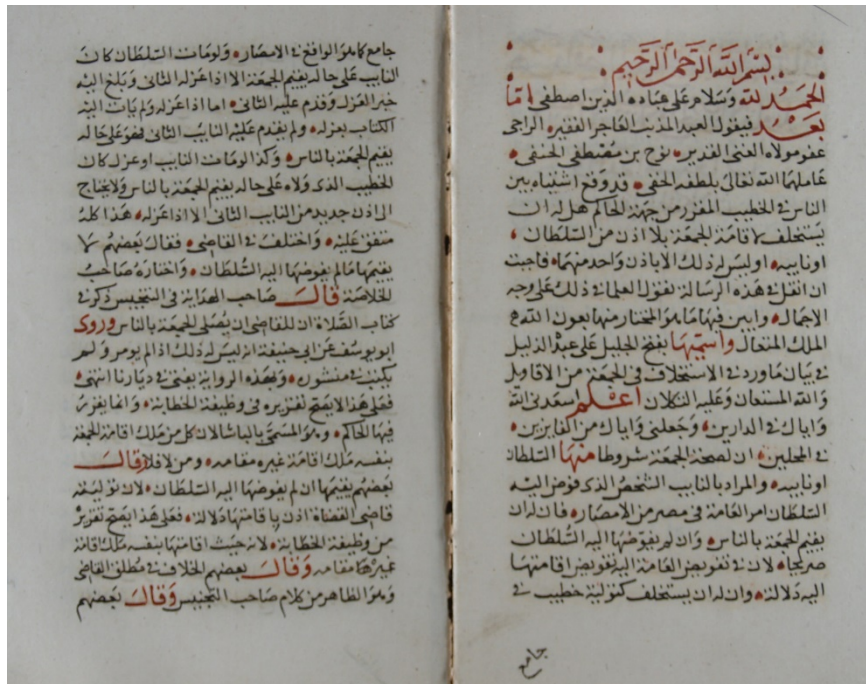 بسم الله الرحمن الرحيم
الحمد لله وسلام على عباده الذين اصطفى اما
بعد فيقول العبد المذنب العاجز الفقير الراجى
عفو مولاه الغنى القدير نوح بن مصطفى الحنفى
عاملهما الله تعالى بلطفه الخفى قد وقع اشتباه بين
الناس فى الخطيب المقرر من جهة الحاكم هل له ان
يستخلف لاقامة الجمعة بلا اذن من السلطان
او نايبه او ليس له ذلك الا باذن واحد منهما فاجبت
ان انقل فى هذه الرسالة نقول العلما فى ذلك على وجه
الاجمال وابين فيها ما هو المختار منها بعون الله
الملك المتعال واسميتها بفتح الجليل على عبده الذليل
فى بيان ما ورد فى الاستخلاف فى الجمعة من الاقاويل
والله المستعان وعليه التكلان اعلم اسعدنى الله
واياك فى الدارين وجعلنى واياك من الفايزين
فى المحلين ان لصحة الجمعة شروطا منها السلطان
او نايبه والمراد بالنايب الشخص الذى فوض اليه
السلطان امر العامة فى مصر من الامصار فان له ان
يقيم الجمعة بالناس وان لم يفوضها اليه السلطان
صريحا لان فى تفويض العامة اليه تفويض اقامتها
اليه دلالة وان له ان يستخلف كتولية خطيب فى
جامع
جامع كما هو الواقع فى الامصار ولو مات السلطان كان
النايب على حاله يقيم الجمعة الا اذا عزله الثانى وبلغ اليه
خبر العزل وقدم عليه الثانى اما اذا عزله ولم يات اليه
الكتاب بعزله ولم يقدم عليه النايب الثانى فهو على حاله
يقيم الجمعة بالناس وكذا لو مات النايب او عزل كان
الخطيب الذى ولاه على حاله يقيم الجمعة بالناس ولا يحتاج
الى اذن جديد من النايب الثانى الا اذا عزله هذا كله
متفق عليه واختلف فى القاضى فقال بعضهم لا
يقيمها ما لم يفوضها اليه السلطان واختاره صاحب
الخلاصة قال صاحب الهداية فى التجنيس ذكر فى
كتاب الصلاة ان للقاضى ان يصلى الجمعة بالناس وروى
ابو يوسف عن ابى حنيفة انه ليس له ذلك اذا لم يومر ولم
يكتب فى منشوره وبهذه الرواية يفتى فى ديارنا انتهى
فعلى هذا لا يصح تقريره فى وظيفة الخطابة وانما يقرر
فيها الحاكم وهو المسمى بالباشا لان كل من ملك اقامة الجمعة
بنفسه ملك اقامة غيره مقامه ومن لا فلا وقال
بعضهم يقيمها ان لم يفوضها اليه السلطان لان تولية
قاضى القضاة اذن باقامتها دلالة فعلى هذا يصح تقرير
من وظيفة الخطابة لانه حيث اقامتها بنفسه ملك اقامة
غيره مقامه وقال بعضهم الخلاف فى مطلق القاضى
وهو الظاهر من كلام صاحب التجنيس وقال بعضهم